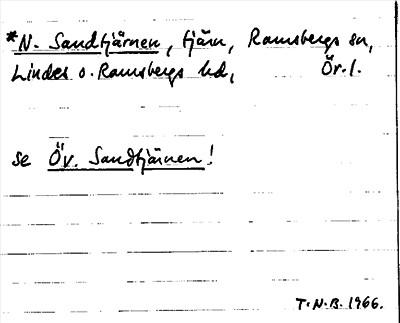 *N. Sandtjärnen, tjärn, Ramsbergs sn,
Lindes o. Ramsbergs hd, Ör. l.
se Öv. Sandtjärnen!
T.N.B. 1966.